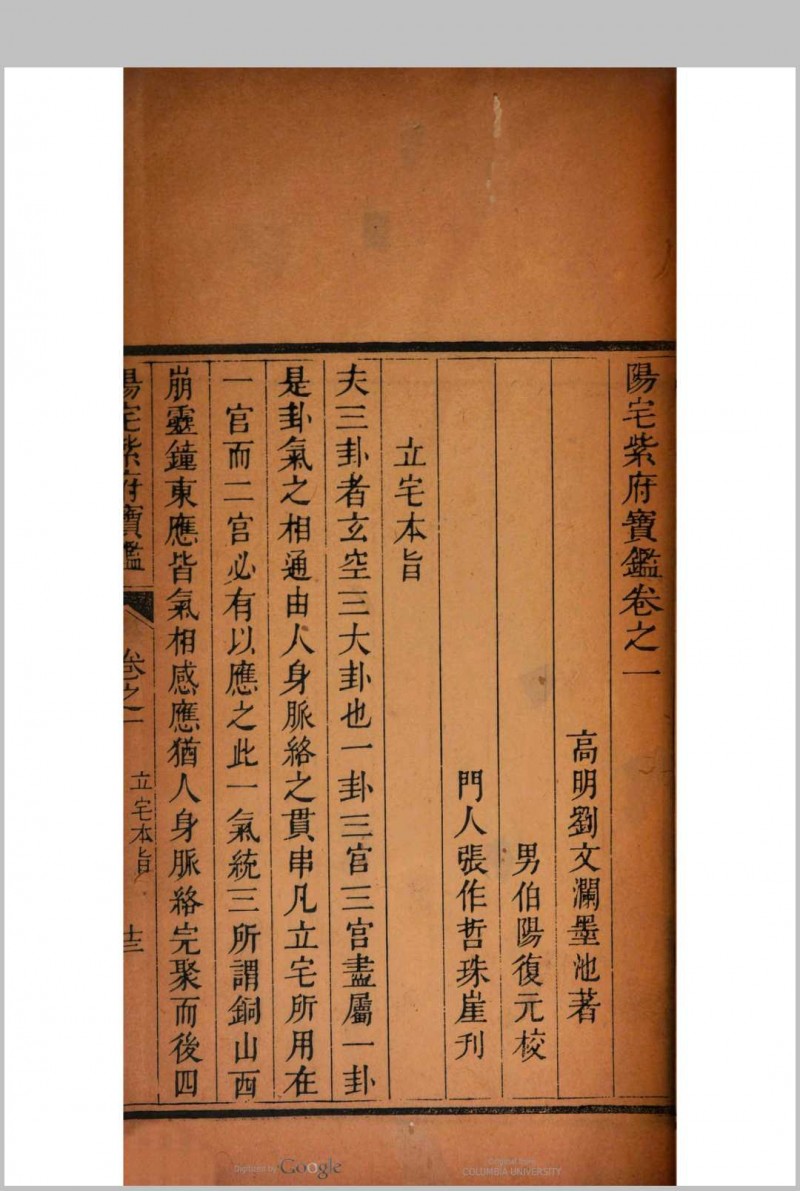 陽宅紫府寶鑑卷之一
高明劉文瀾墨池著
男伯陽復元校
門人張作哲珠崖刊
立宅本旨
夫三卦者玄空三大卦也一卦三官三官盡屬一卦
是卦氣之相通由人身脈絡之貫串凡立宅所用在
一官而二官必有以應之此一氣統三所謂銅山西
崩靈鐘東應皆氣相感應猶人身脈絡完聚而後四
陽宅紫府寶鑑
卷之一
立宅本旨
十三
Digitized by Google
Original from
COLUMBIA UNIVERSITY